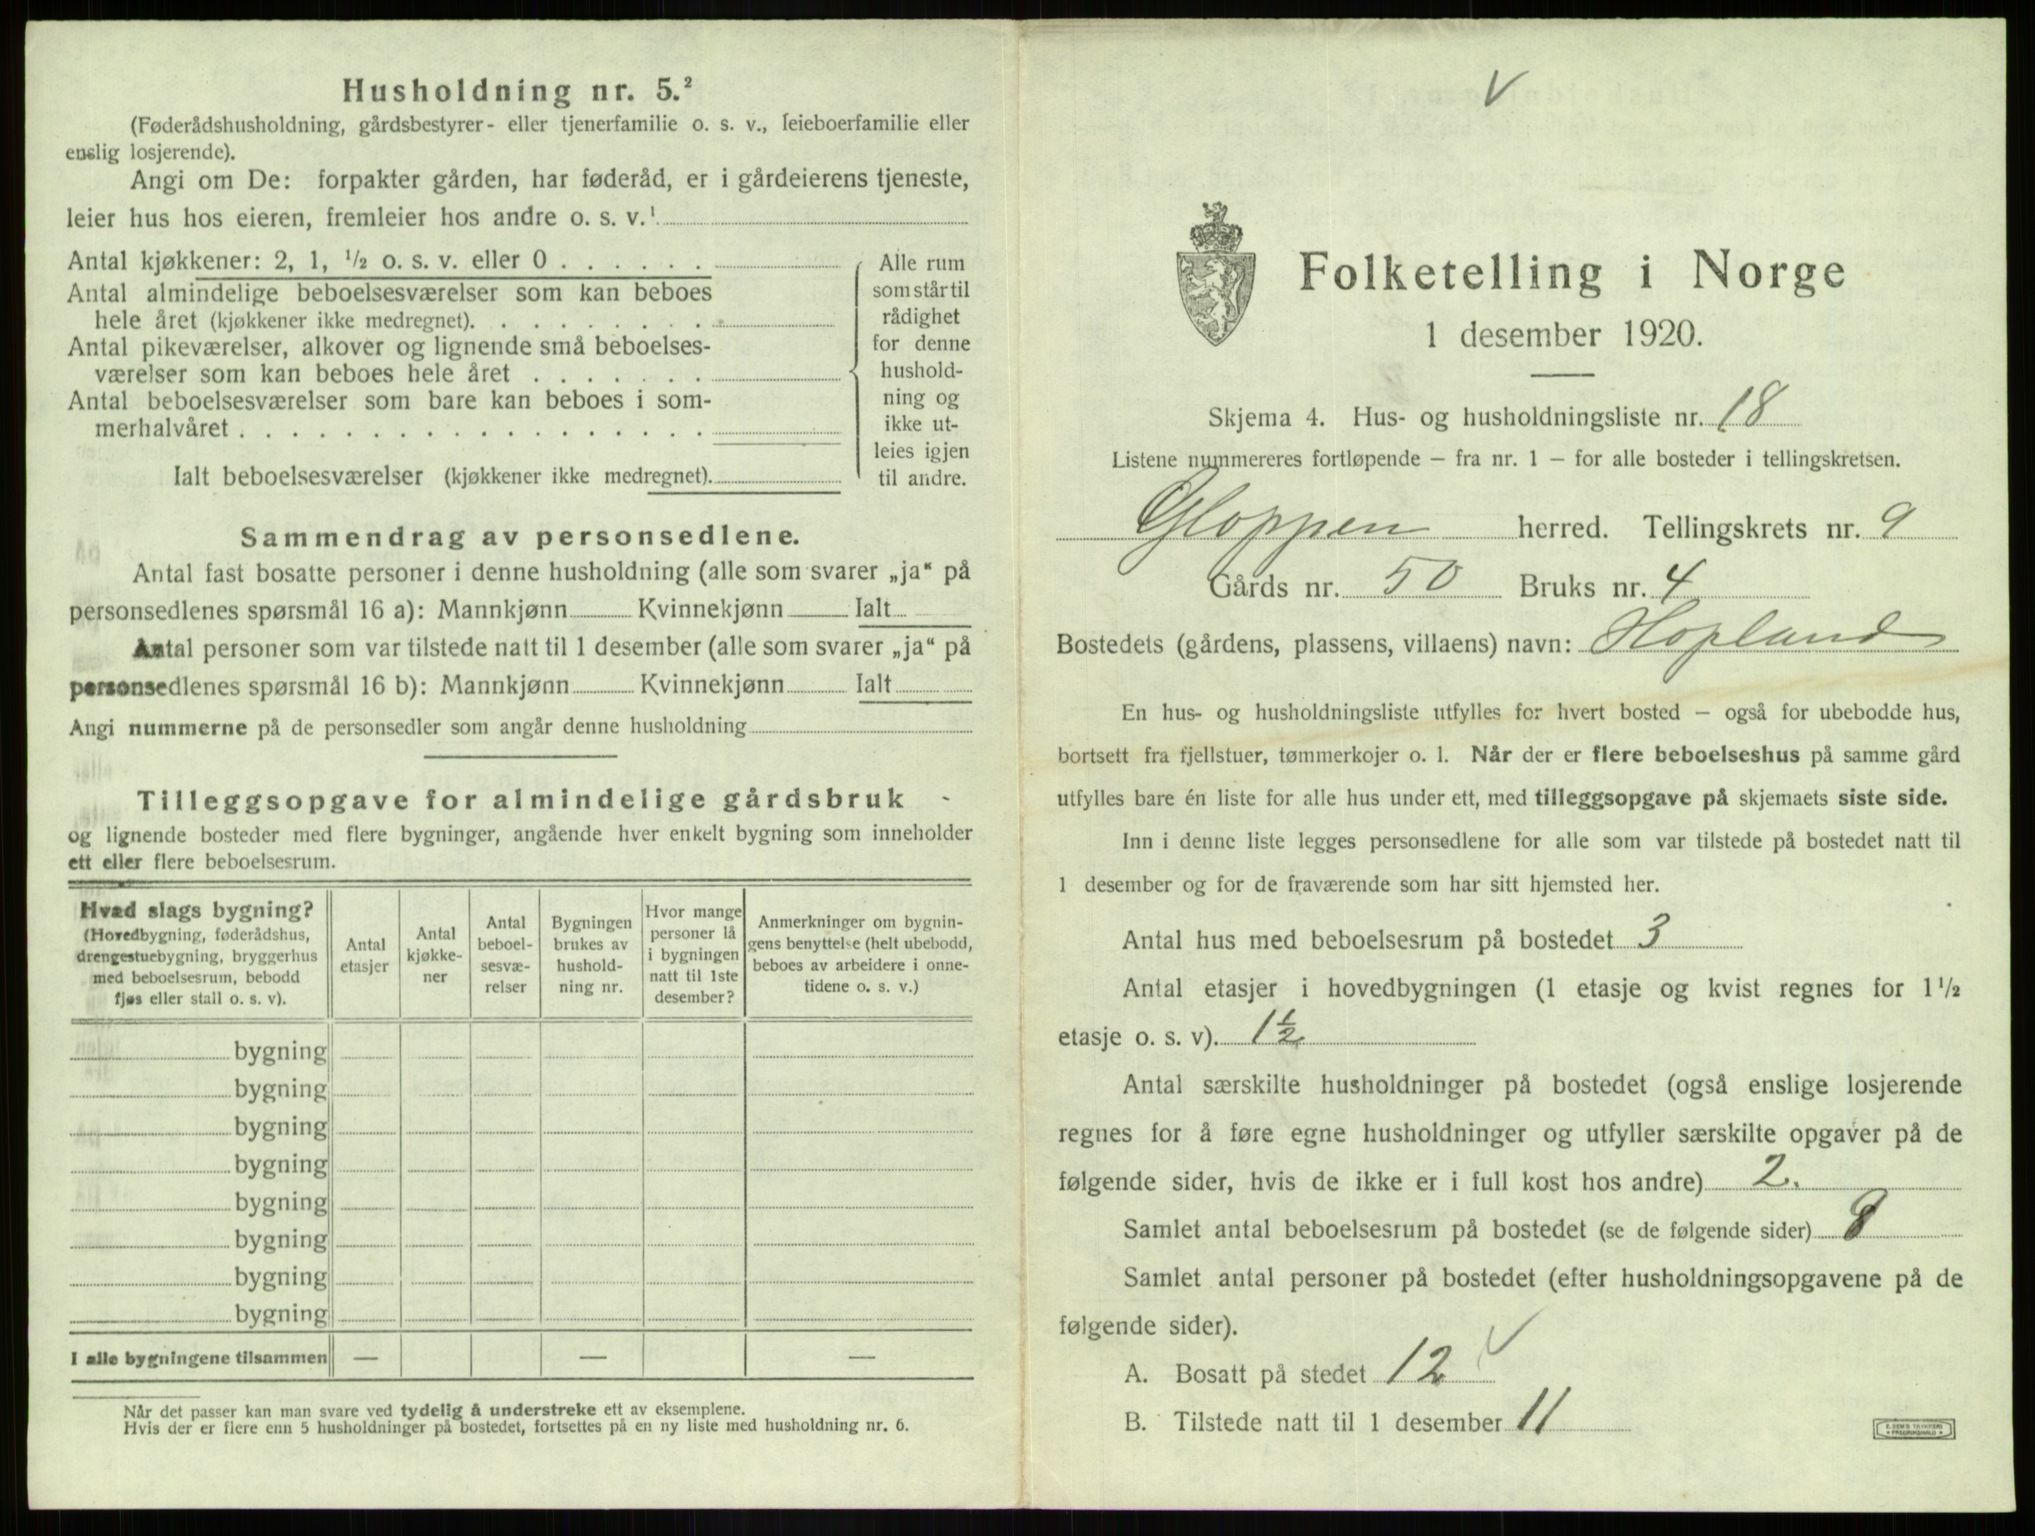 Husholdning nr. 5.²
(Føderådshusholdning, gårdsbestyrer- eller tjenerfamilie o. s. v., leieboerfamilie eller
enslig losjerende).
Angi om De: forpakter gården, har føderåd, er i gårdeierens tjeneste,
leier hus hos eieren, fremleier hos andre o. s. v.¹
Antal kjøkkener: 2, 1, ½ o. s. v. eller 0 . . . . . .
Antal almindelige beboelsesværelser som kan beboes
hele året (kjøkkener ikke medregnet). . . . . . . . .
Antal pikeværelser, alkover og lignende små beboelses-
værelser som kan beboes hele året . . . . . . .
Antal beboelsesværelser som bare kan beboes i som-
merhalvåret . . . . . . . . . . . . . . . . . .
Ialt beboelsesværelser (kjøkkener ikke medregnet).
Alle rum
som står til
rådighet
for denne
hushold-
ning og
ikke ut-
leies igjen
til andre.
Sammendrag av personsedlene.
Antal fast bosatte personer i denne husholdning (alle som svarer „ja“ på
personsedlenes spørsmål 16 a): Mannkjønn Kvinnekjønn Ialt
Antal personer som var tilstede natt til 1 desember (alle som svarer „ja“ på
personsedlenes spørsmål 16 b): Mannkjønn Kvinnekjønn Ialt
Angi nummerne på de personsedler som angår denne husholdning
Tilleggsopgave for almindelige gårdsbruk
og lignende bosteder med flere bygninger, angående hver enkelt bygning som inneholder
ett eller flere beboelsesrum.
Hvad slags bygning?
(Hovedbygning, føderådshus,
drengestuebygning, bryggerhus
med beboelsesrum, bebodd
fjøs eller stall o. s. v).
Antal
etasjer
Antal
kjøkke-
ner
Antal
beboel-
sesvæ-
relser
Bygningen
brukes av
hushold-
ning nr.
Hvor mange
personer lå
i bygningen
natt til 1ste
desember?
Anmerkninger om bygnin-
gens benyttelse (helt ubebodd,
beboes av arbeidere i onne-
tidene o. s. v.)
bygning
bygning
bygning
bygning
bygning
bygning
bygning
bygning
I alle bygningene tilsammen — — —
Når det passer kan man svare ved tydelig å understreke ett av eksemplene.
Hvis der er flere enn 5 husholdninger på bostedet, fortsettes på en ny liste med husholdning nr. 6.
Folketelling i Norge
1 desember 1920.
Skjema 4. Hus- og husholdningsliste nr. 18
Listene nummereres fortløpende – fra nr. 1 – for alle bosteder i tellingskretsen.
Gloppen herred. Tellingskrets nr. 9
Gårds nr. 50 Bruks nr. 4
Bostedets (gårdens, plassens, villaens) navn: Hopland
En hus- og husholdningsliste utfylles for hvert bosted – også for ubebodde hus,
bortsett fra fjellstuer, tømmerkojer o. l. Når der er flere beboelseshus på samme gård
utfylles bare én liste for alle hus under ett, med tilleggsopgave på skjemaets siste side.
Inn i denne liste legges personsedlene for alle som var tilstede på bostedet natt til
1 desember og for de fraværende som har sitt hjemsted her.
Antal hus med beboelsesrum på bostedet 3
Antal etasjer i hovedbygningen (1 etasje og kvist regnes for 1½
etasje o. s. v). 1½
Antal særskilte husholdninger på bostedet (også enslige losjerende
regnes for å føre egne husholdninger og utfyller særskilte opgaver på de
følgende sider, hvis de ikke er i full kost hos andre) 2.
Samlet antal beboelsesrum på bostedet (se de følgende sider) 8
Samlet antal personer på bostedet (efter husholdningsopgavene på de
følgende sider).
A. Bosatt på stedet 12
B. Tilstede natt til 1 desember 11